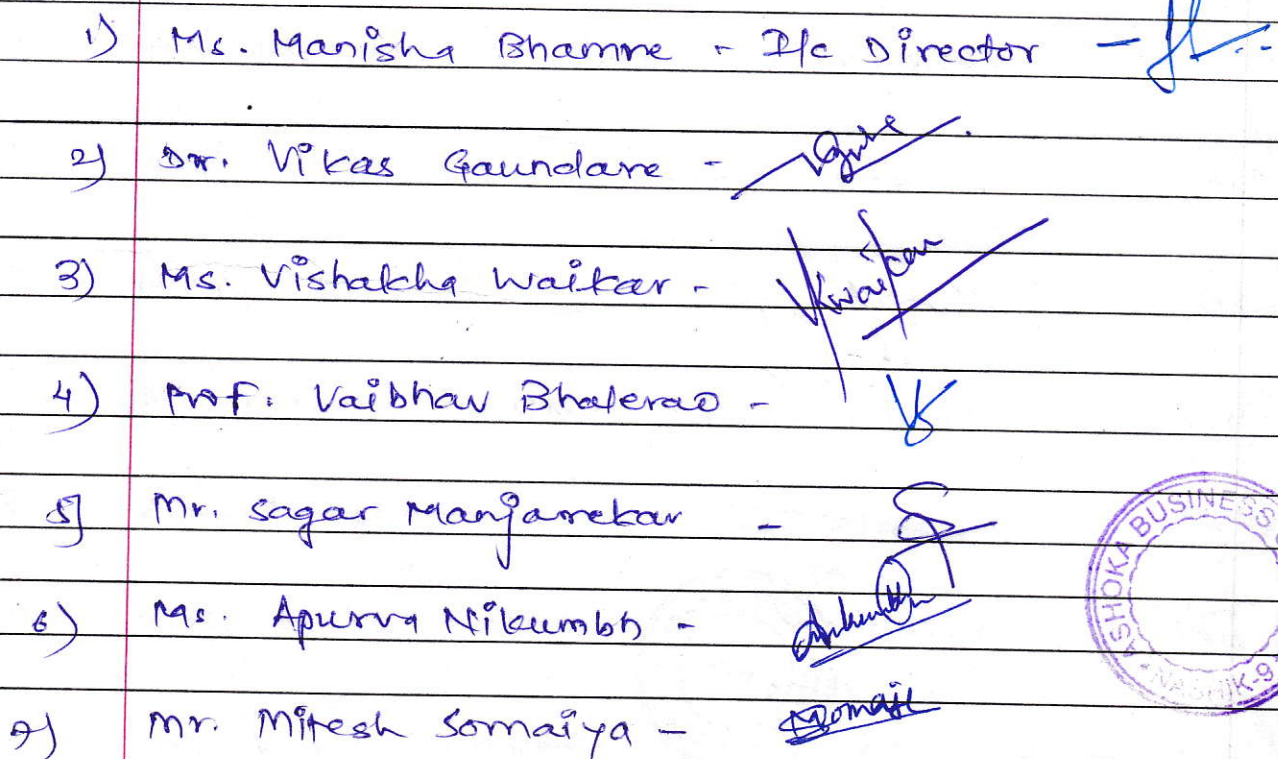 1) Ms. Manisha Bhamre - I/c Director -
2) Dr. Vikas Gaundare -
3) Ms. Vishakha Waikar - VKwaikar
4) Prof. Vaibhav Bhalerao - VB
5] Mr. Sagar Manjarekar -
6) Ms. Apurva Nikumbh -
7) Mr. Mitesh Somaiya -
ASHOKA BUSINESS
NASHIK-9